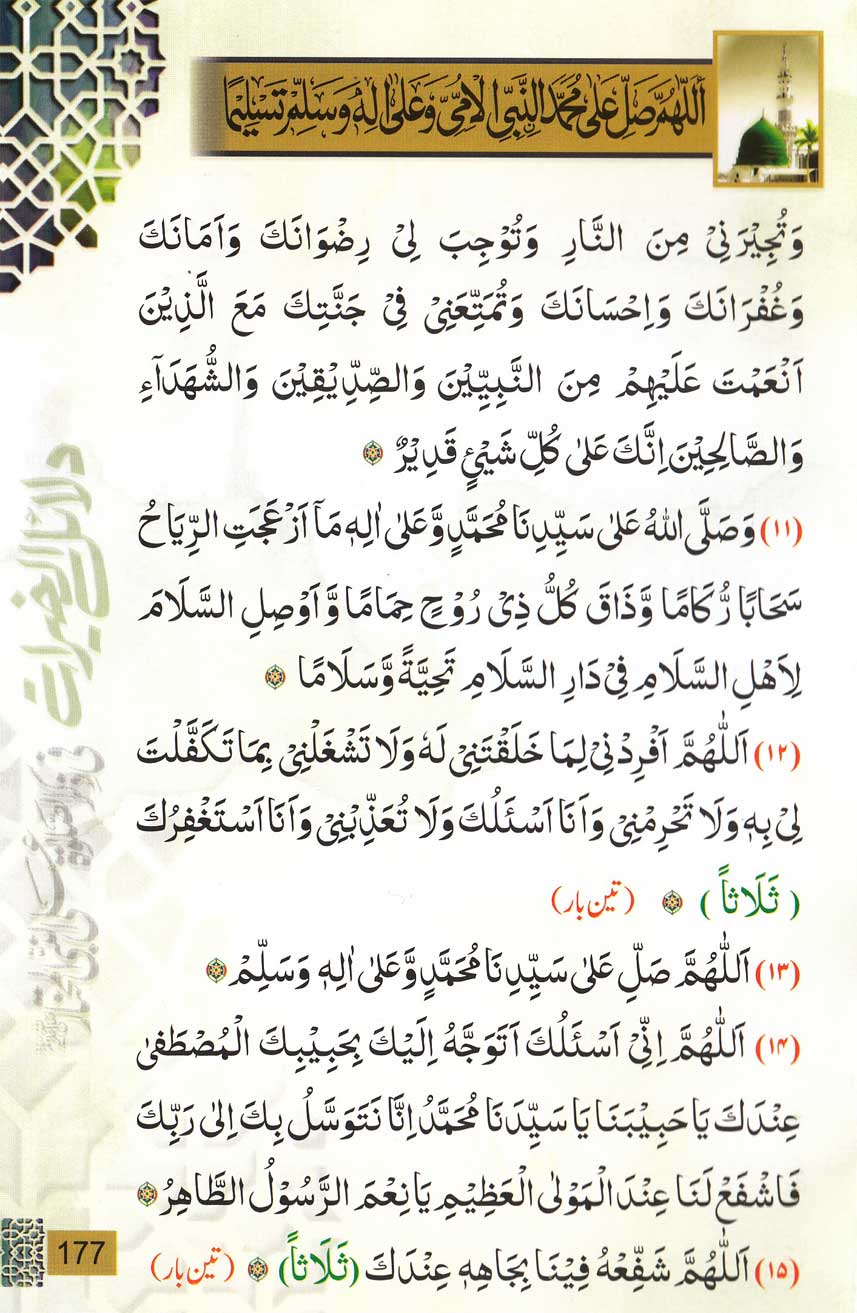 اَللّٰهُمَّ صَلِّ عَلٰى مُحَمَّدٍ النَّبِيِّ الْاُمِّيِّ وَعَلٰى اٰلِهٖ وَسَلِّمْ تَسْلِيْمًا
وَتُجِيْرَنِيْ مِنَ النَّارِ وَتُوْجِبَ لِيْ رِضْوَانَكَ وَاَمَانَكَ
وَغُفْرَانَكَ وَاِحْسَانَكَ وَتُمَتِّعَنِيْ فِيْ جَنَّتِكَ مَعَ الَّذِيْنَ
اَنْعَمْتَ عَلَيْهِمْ مِنَ النَّبِيِّيْنَ وَالصِّدِّيْقِيْنَ وَالشُّهَدَآءِ
وَالصَّالِحِيْنَ اِنَّكَ عَلٰى كُلِّ شَيْئٍ قَدِيْرٌ
(۱۱) وَصَلَّى اللهُ عَلٰى سَيِّدِنَا مُحَمَّدٍ وَّعَلٰى اٰلِهٖ مَآ اَزْعَجَتِ الرِّيَاحُ
سَحَابًا رُّكَامًا وَّذَاقَ كُلُّ ذِيْ رُوْحٍ حِمَامًا وَّاَوْصِلِ السَّلَامَ
لِاَهْلِ السَّلَامِ فِيْ دَارِ السَّلَامِ تَحِيَّةً وَّسَلَامًا
(۱۲) اَللّٰهُمَّ اَفْرِدْنِيْ لِمَا خَلَقْتَنِيْ لَهٗ وَلَا تَشْغَلْنِيْ بِمَا تَكَفَّلْتَ
لِيْ بِهٖ وَلَا تَحْرِمْنِيْ وَاَنَا اَسْئَلُكَ وَلَا تُعَذِّبْنِيْ وَاَنَا اَسْتَغْفِرُكَ
(ثَلَاثاً) (تین بار)
(۱۳) اَللّٰهُمَّ صَلِّ عَلٰى سَيِّدِنَا مُحَمَّدٍ وَّعَلٰى اٰلِهٖ وَسَلِّمْ
(۱۴) اَللّٰهُمَّ اِنِّيْ اَسْئَلُكَ اَتَوَجَّهُ اِلَيْكَ بِحَبِيْبِكَ الْمُصْطَفٰى
عِنْدَكَ يَا حَبِيْبَنَا يَا سَيِّدَنَا مُحَمَّدُ اِنَّا نَتَوَسَّلُ بِكَ اِلٰى رَبِّكَ
فَاشْفَعْ لَنَا عِنْدَ الْمَوْلٰى الْعَظِيْمِ يَا نِعْمَ الرَّسُوْلُ الطَّاهِرُ
(۱۵) اَللّٰهُمَّ شَفِّعْهُ فِيْنَا بِجَاهِهٖ عِنْدَكَ (ثَلَاثاً) (تین بار)
دلائل الخیرات
177